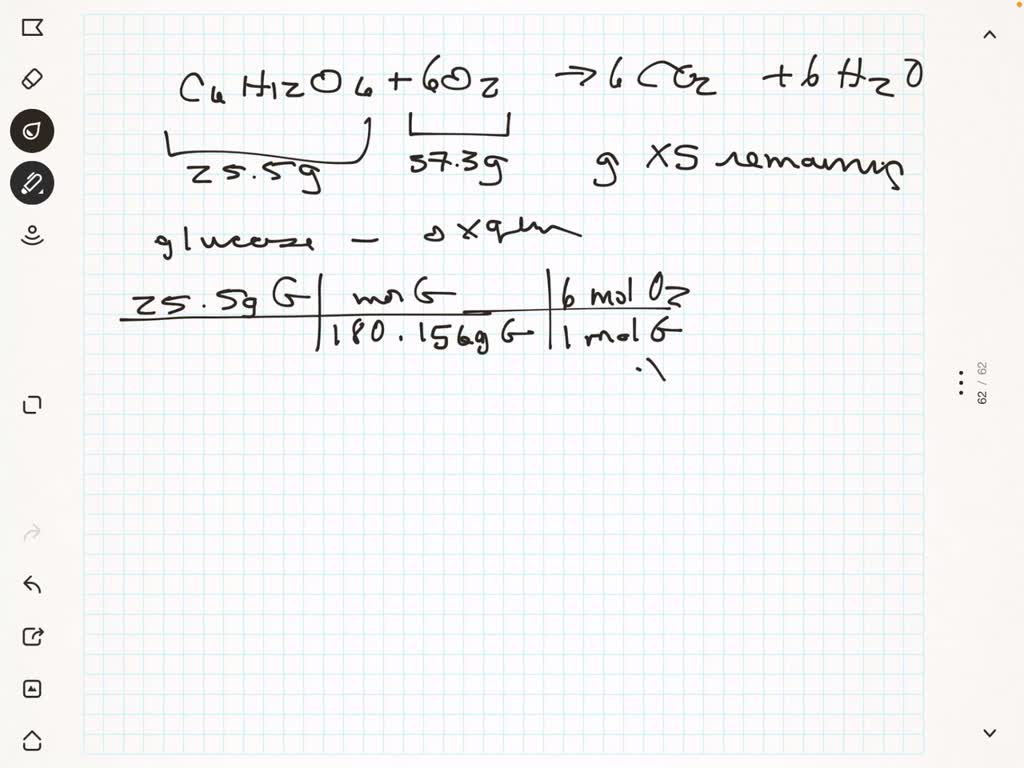 C6H12O6 + 6O2 → 6 CO2 + 6 H2O
25.5g 57.3g g XS remaining
glucose – oxygen
25.5g G | mol G | 6 mol O2
180.156g G | 1 mol G
62 / 62